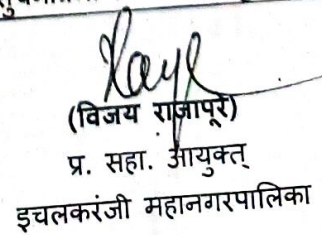 (विजय राजापूरे)
प्र. सहा. आयुक्त्
इचलकरंजी महानगरपालिका